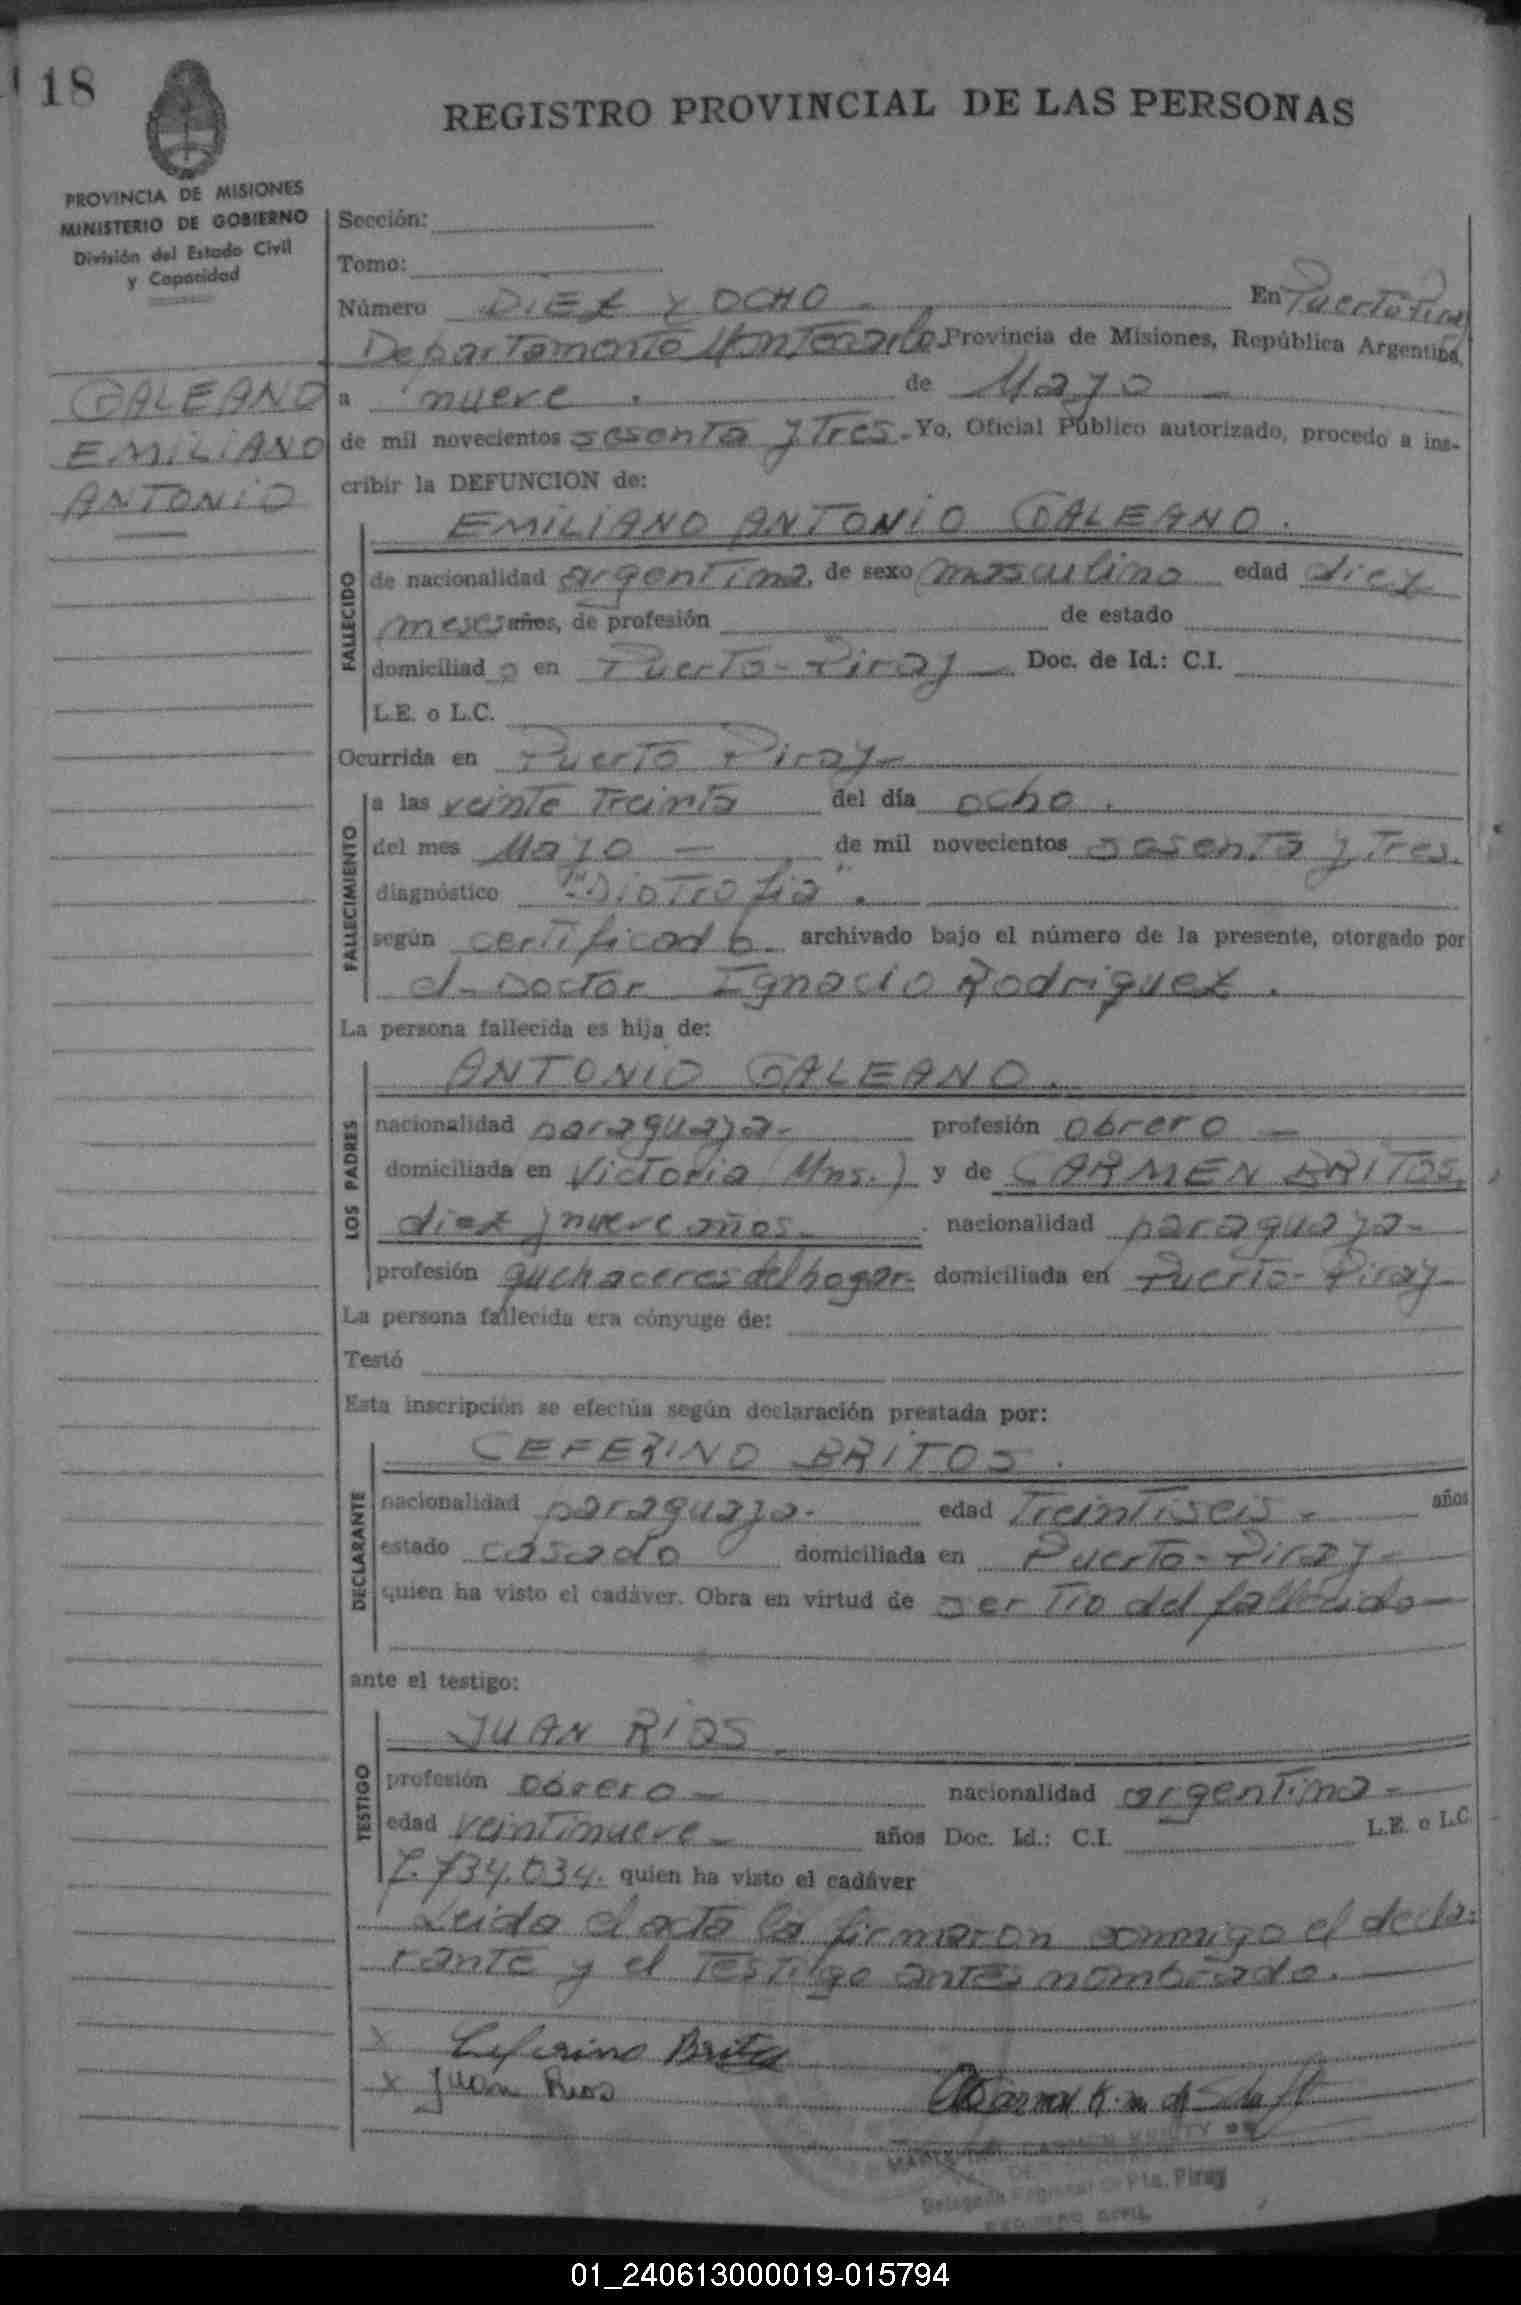 18
REGISTRO PROVINCIAL DE LAS PERSONAS
PROVINCIA DE MISIONES
MINISTERIO DE GOBIERNO
División del Estado Civil
y Capacidad
GALEANO
EMILIANO
ANTONIO
Sección:
Tomo:
Número DIEZ Y OCHO - En Puerto Piray
Departamento Montecarlo Provincia de Misiones, República Argentina,
a nueve . de Mayo -
de mil novecientos sesenta y tres - Yo, Oficial Público autorizado, procedo a ins-
cribir la DEFUNCION de:
FALLECIDO
EMILIANO ANTONIO GALEANO.
de nacionalidad argentina, de sexo masculino edad diez
meses años, de profesión de estado
domiciliad o en Puerto-Piray - Doc. de Id.: C.I.
L.E. o L.C.
Ocurrida en Puerto Piray-
FALLECIMIENTO
a las veinte treinta del día ocho .
del mes Mayo - de mil novecientos sesenta y tres.
diagnóstico "Distrofia".
según certificado archivado bajo el número de la presente, otorgado por
el Doctor Ignacio Rodriguez.
La persona fallecida es hija de:
LOS PADRES
ANTONIO GALEANO.
nacionalidad paraguaya- profesión obrero -
domiciliada en Victoria (Mns.) y de CARMEN BRITOS,
diez y nueve años- nacionalidad paraguaya-
profesión quehaceres del hogar- domiciliada en Puerto-Piray-
La persona fallecida era cónyuge de:
Testó
Esta inscripción se efectúa según declaración prestada por:
DECLARANTE
CEFERINO BRITOS.
nacionalidad paraguaya- edad Treintiseis - años
estado casado domiciliada en Puerto-Piray-
quien ha visto el cadáver. Obra en virtud de ser Tio del fallecido-
ante el testigo:
TESTIGO
JUAN RIOS
profesión obrero - nacionalidad argentina -
edad veintinueve - años Doc. Id.: C.I. L.E. o L.C.
7.734.034. quien ha visto el cadáver
Leida el acta la firmaron conmigo el decla-
rante y el Testigo antes nombrado. -
x Ceferino Britos
x Juan Rios
Pto. Piray
01_240613000019-015794